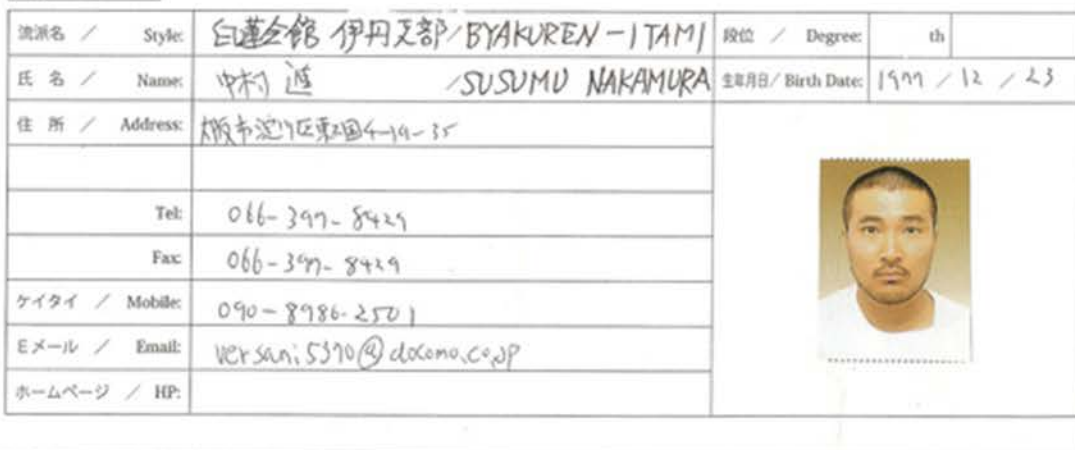 流派名 / Style: 白蓮会館 伊丹支部/BYAKUREN-ITAMI 段位 / Degree: th
氏 名 / Name: 中村 進 /SUSUMU NAKAMURA 生年月日/ Birth Date: 1977 / 12 / 23
住 所 / Address: 大阪市淀川区東三国4-19-35
Tel: 066-397-8429
Fax: 066-397-8429
ケイタイ / Mobile: 090-8986-2501
Eメール / Email: versani5370@docomo.co.jp
ホームページ / HP: